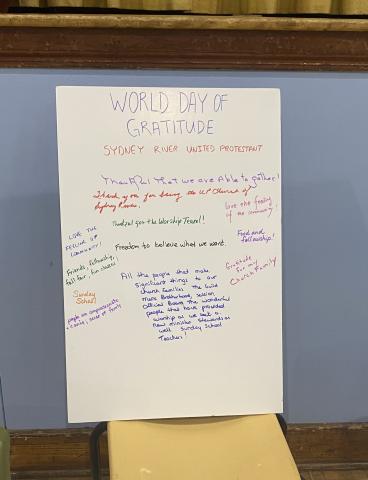 WORLD DAY OF
GRATITUDE
SYDNEY RIVER UNITED PROTESTANT
Thankful that we are able to gather!
Thank you for being the UP Church of
Sydney River.
love the feeling
of the community!
Thankful for the Worship Team!
LOVE THE
FEELING OF
COMMUNITY!
Freedom to believe what we want.
Food and
fellowship!
Friends, fellowship,
fall fair, fun
Gratitude
for my
Church Family
All the people that make
significant things to our
Church Families. The Guild
Brotherhood, session
Official Board, the wonderful
people that have provided
worship as we seek a
new minister stewards as
well Sunday School
Teachers!
Sunday
School
people are compassionate
+ caring, sense of family